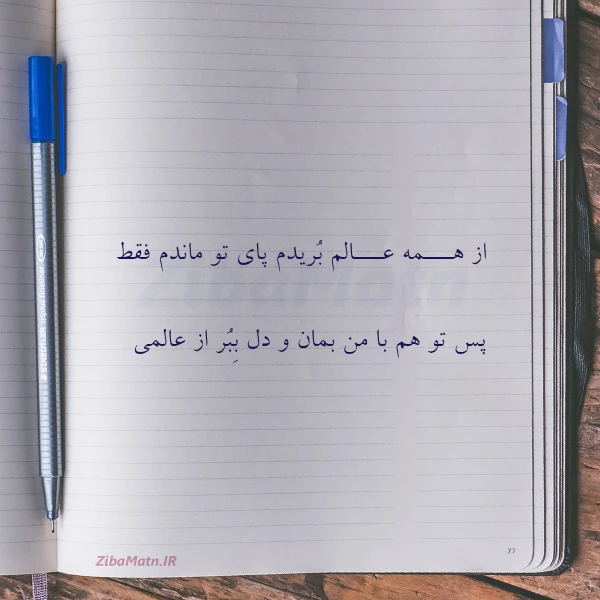 از هـــمه عـــالم بُریدم پای تو ماندم فقط
پس تو هم با من بمان و دل بِبُر از عالمی
ZibaMatn.IR